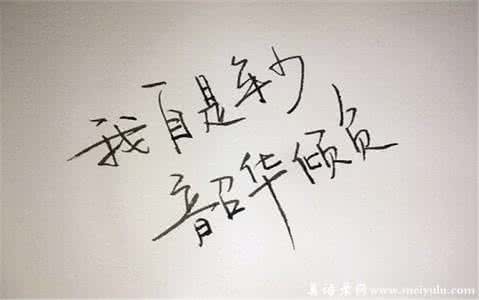 我自是年少
韶华倾负
美语录网www.meiyulu.com